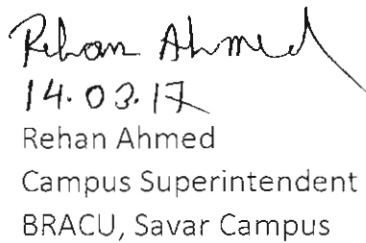 Rehan Ahmed
14.03.17
Rehan Ahmed
Campus Superintendent
BRACU, Savar Campus